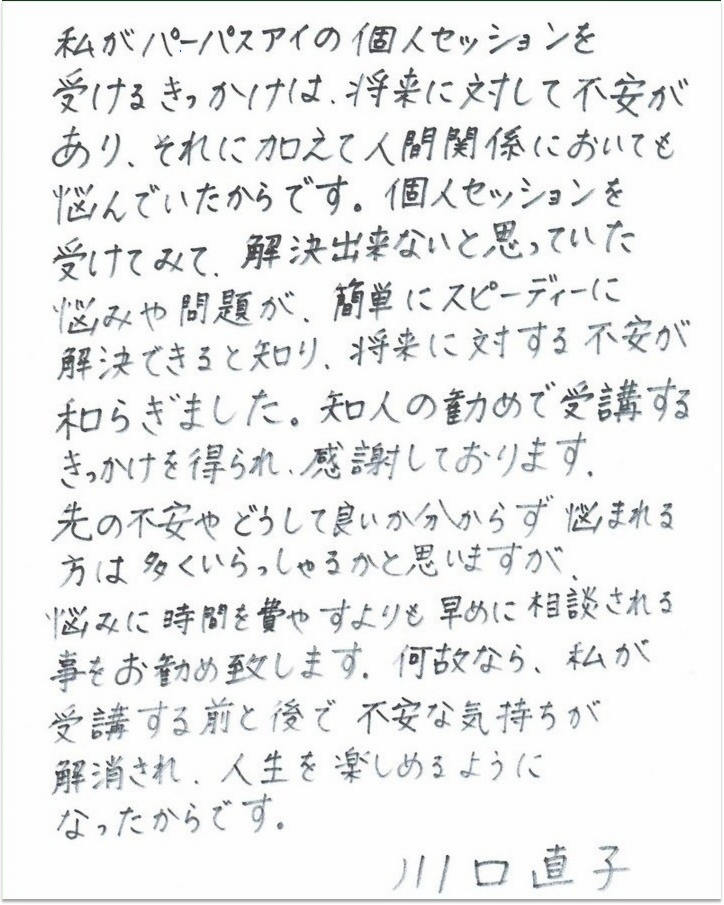 私がパーパスアイの個人セッションを
受けるきっかけは、将来に対して不安が
あり、それに加えて人間関係においても
悩んでいたからです。個人セッションを
受けてみて、解決出来ないと思っていた
悩みや問題が、簡単にスピーディーに
解決できると知り、将来に対する不安が
和らぎました。知人の勧めで受講する
きっかけを得られ、感謝しております。
先の不安やどうして良いか分からず悩まれる
方は多くいらっしゃるかと思いますが、
悩みに時間を費やすよりも早めに相談される
事をお勧め致します。何故なら、私が
受講する前と後で不安な気持ちが
解消され、人生を楽しめるように
なったからです。
川口直子